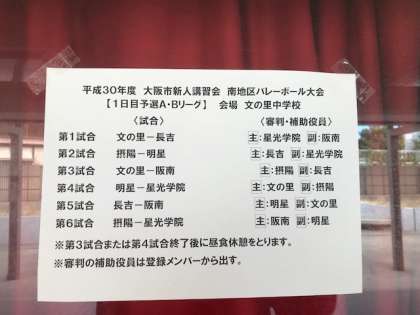 平成30年度 大阪市新人講習会 南地区バレーボール大会
【1日目予選A・Bリーグ】 会場 文の里中学校
〈試合〉 〈審判・補助役員〉
第1試合 文の里－長吉 主:星光学院 副:阪南
第2試合 摂陽－明星 主:長吉 副:星光学院
第3試合 文の里－阪南 主:摂陽 副:長吉
第4試合 明星－星光学院 主:文の里 副:摂陽
第5試合 長吉－阪南 主:明星 副:文の里
第6試合 摂陽－星光学院 主:阪南 副:明星
※第3試合または第4試合終了後に昼食休憩をとります。
※審判の補助役員は登録メンバーから出す。